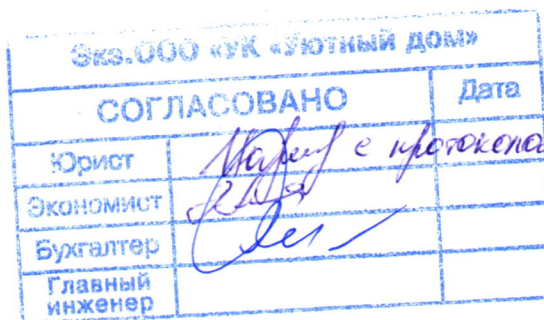 Экз.ООО «УК «Уютный дом»
СОГЛАСОВАНО Дата
Юрист с протокола
Экономист
Бухгалтер
Главный
инженер